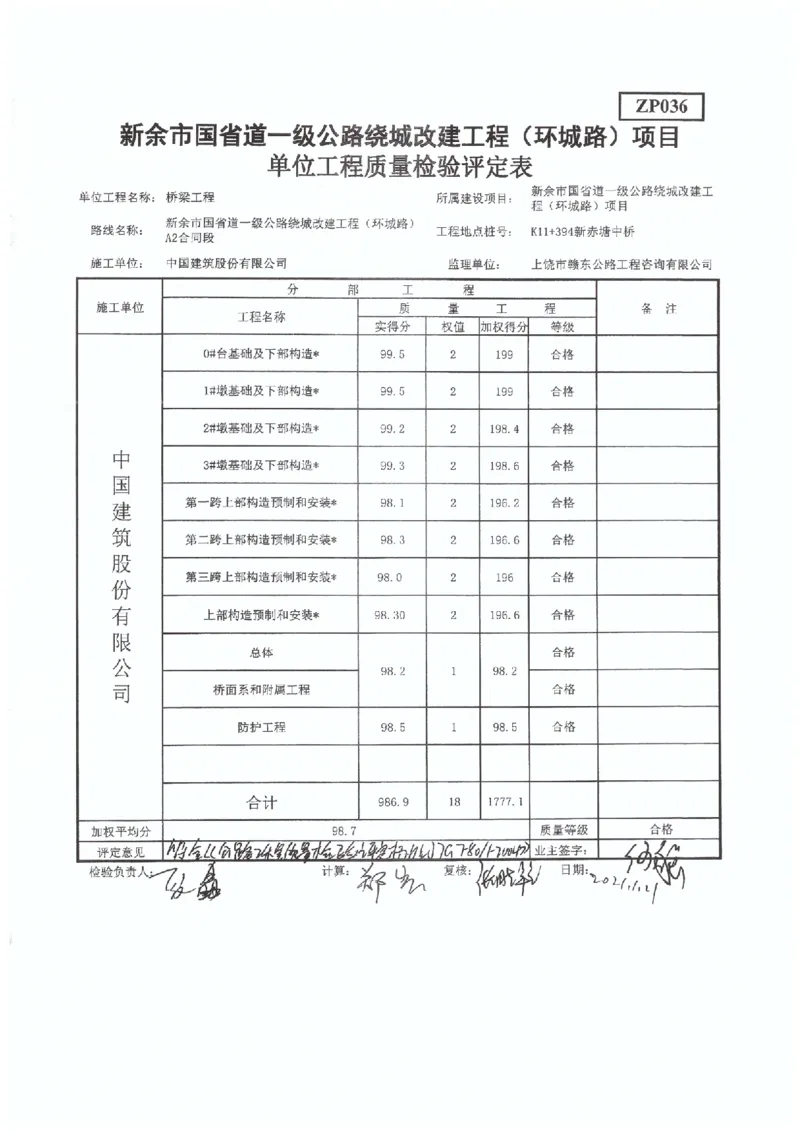 ZP036
新余市国省道一级公路绕城改建工程（环城路）项目
单位工程质量检验评定表
单位工程名称： 桥梁工程 所属建设项目： 新余市国省道一级公路绕城改建工程（环城路）项目
路线名称： 新余市国省道一级公路绕城改建工程（环城路）A2合同段 工程地点桩号： K11+394新赤塘中桥
施工单位： 中国建筑股份有限公司 监理单位： 上饶市赣东公路工程咨询有限公司
施工单位 分部工程 备注
工程名称 质量工程
实得分 权值 加权得分 等级
中国建筑股份有限公司
0#台基础及下部构造* 99.5 2 199 合格
1#墩基础及下部构造* 99.5 2 199 合格
2#墩基础及下部构造* 99.2 2 198.4 合格
3#墩基础及下部构造* 99.3 2 198.6 合格
第一跨上部构造预制和安装* 98.1 2 196.2 合格
第二跨上部构造预制和安装* 98.3 2 196.6 合格
第三跨上部构造预制和安装* 98.0 2 196 合格
上部构造预制和安装* 98.30 2 196.6 合格
总体 98.2 1 98.2 合格
桥面系和附属工程 合格
防护工程 98.5 1 98.5 合格
合计 986.9 18 1777.1
加权平均分 98.7 质量等级 合格
评定意见 符合《公路工程质量检验评定标准》 业主签字：
检验负责人： 计算： 复核： 日期：